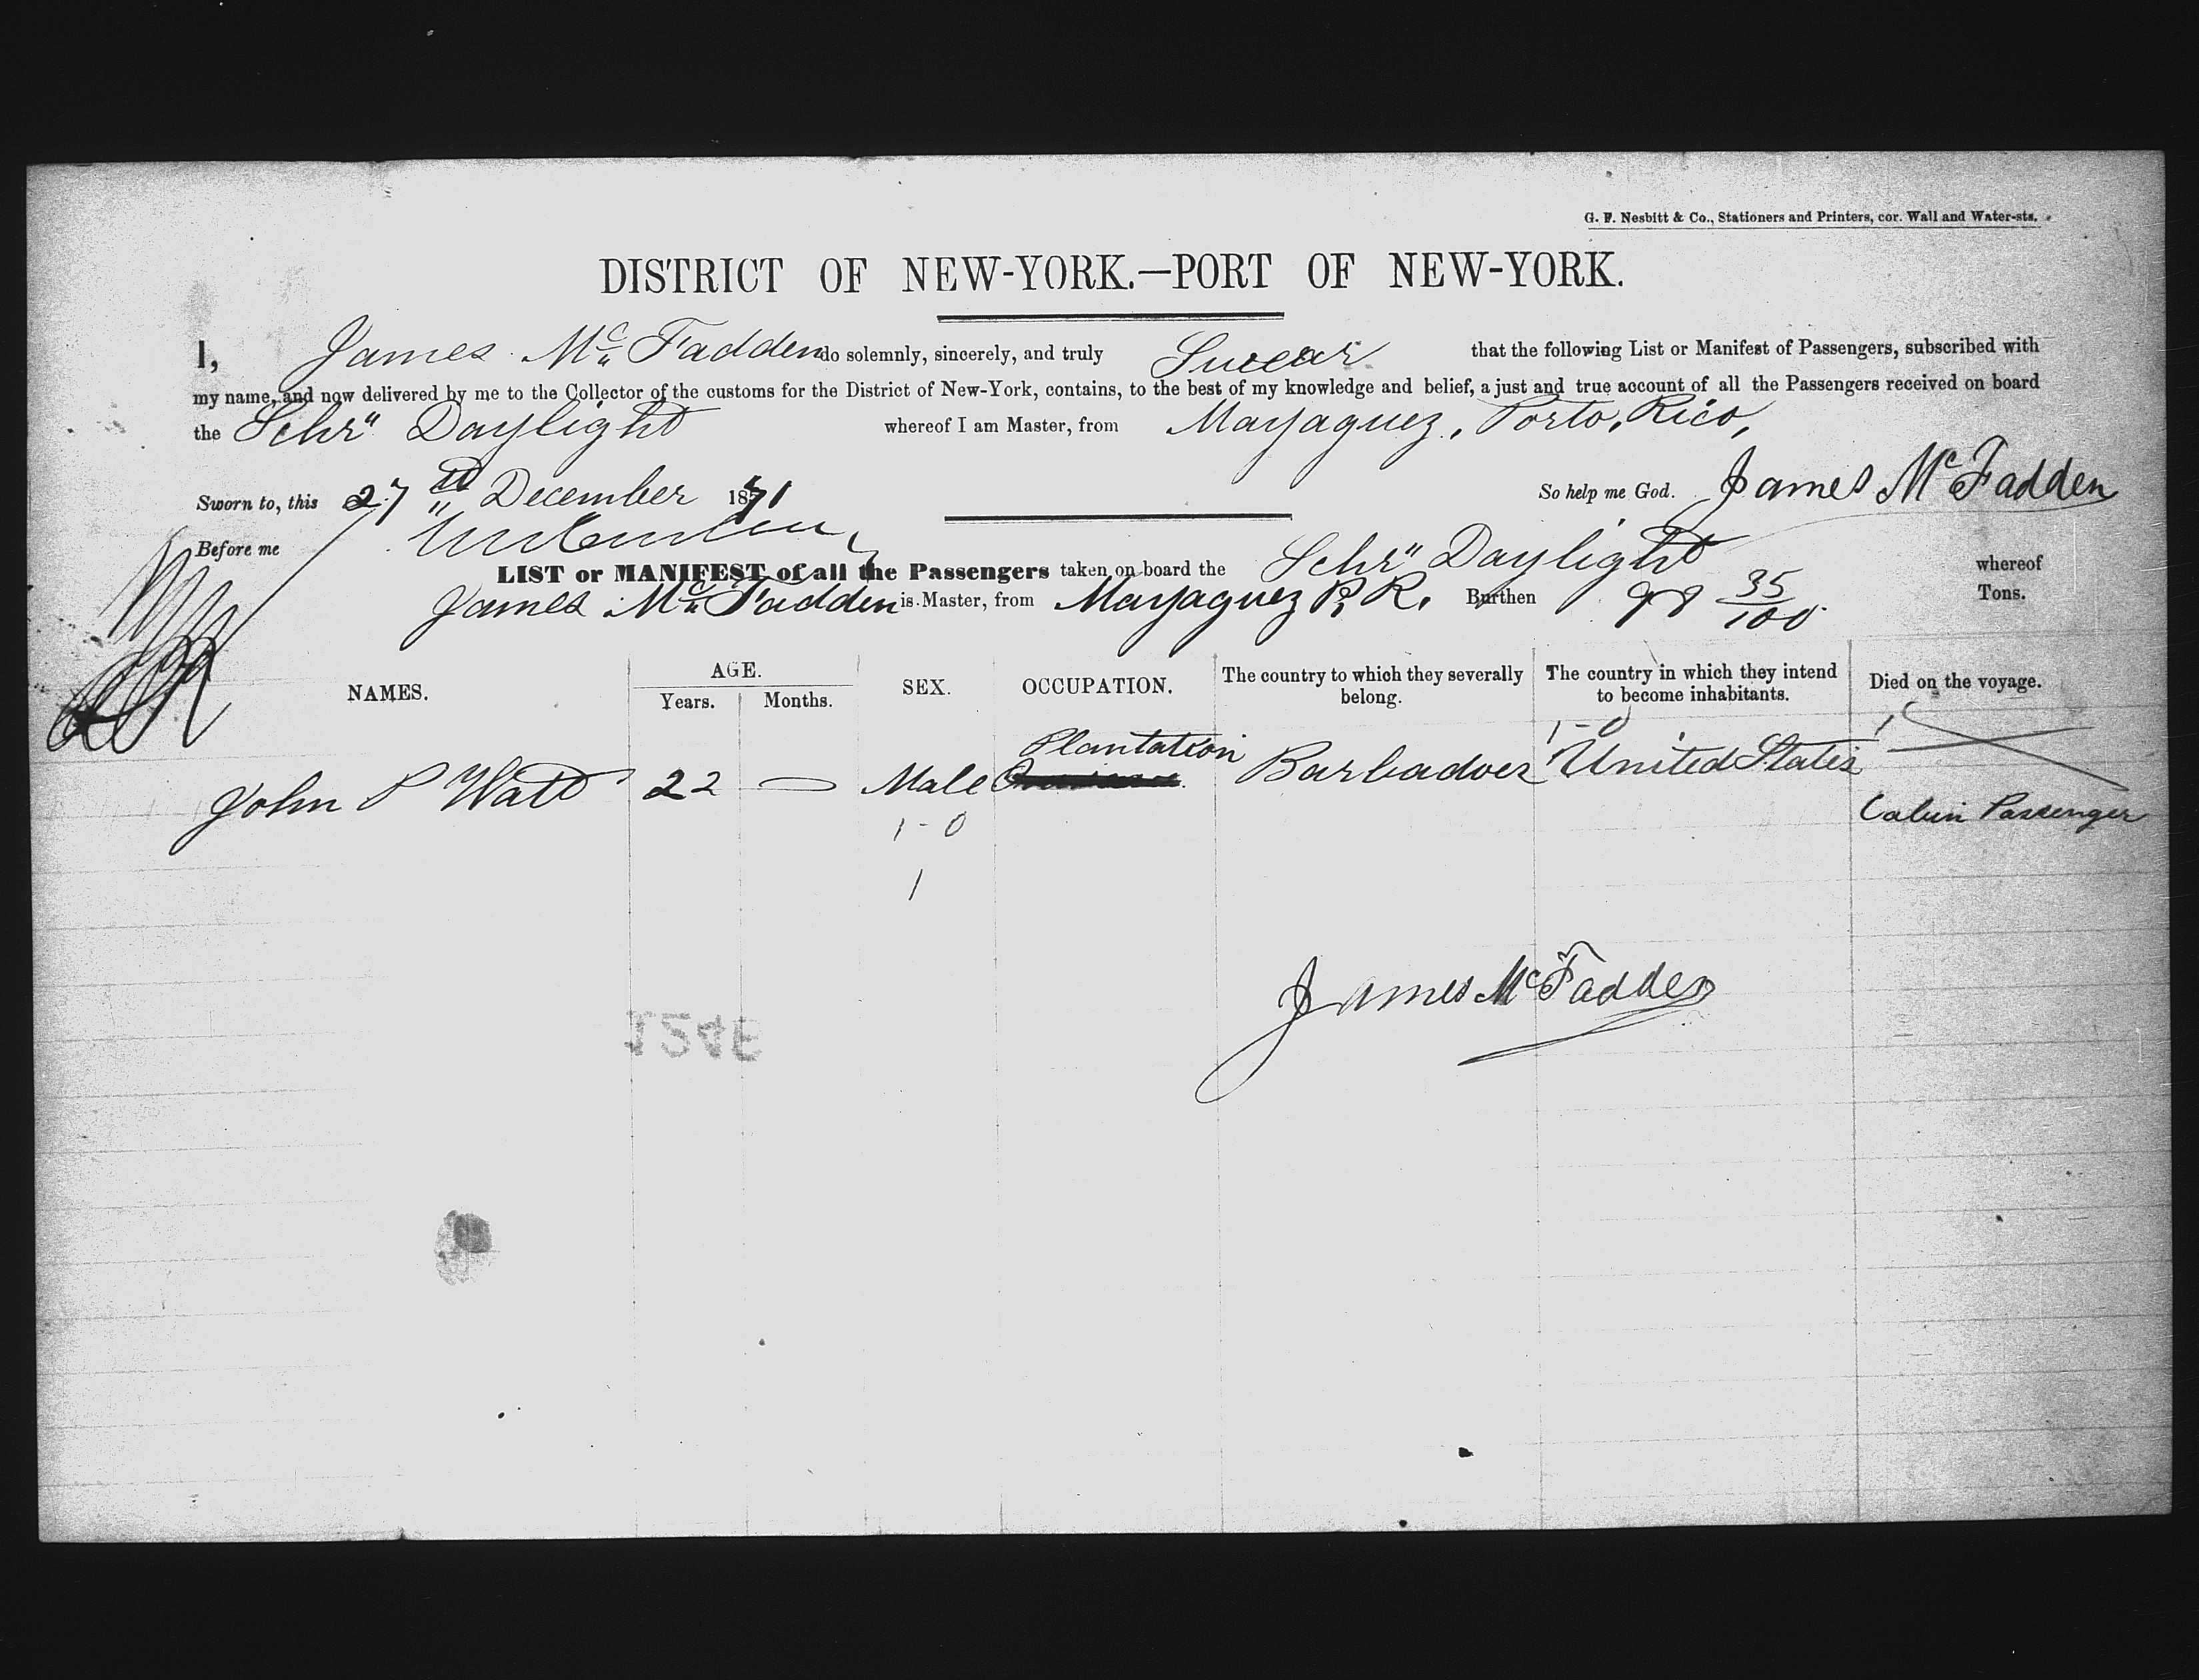 G. F. Nesbitt & Co., Stationers and Printers, cor. Wall and Water-sts.
DISTRICT OF NEW-YORK.—PORT OF NEW-YORK.
I, James Mc Fadden do solemnly, sincerely, and truly Swear that the following List or Manifest of Passengers, subscribed with
my name, and now delivered by me to the Collector of the customs for the District of New-York, contains, to the best of my knowledge and belief, a just and true account of all the Passengers received on board
the Schr" Daylight whereof I am Master, from Mayaguez, Porto, Rico,
Sworn to, this 27th December 1871 So help me God. James McFadden
Before me
LIST or MANIFEST of all the Passengers taken on board the Schr" Daylight whereof
James Mc Fadden is Master, from Mayaguez P. R. Burthen 98 35/100 Tons.
NAMES. AGE. Years. Months. SEX. OCCUPATION. The country to which they severally belong. The country in which they intend to become inhabitants. Died on the voyage.
1-0
Plantation
John P Watt 22 — Male Barbadoes United States
Cabin Passenger
1-0
1
James McFadden